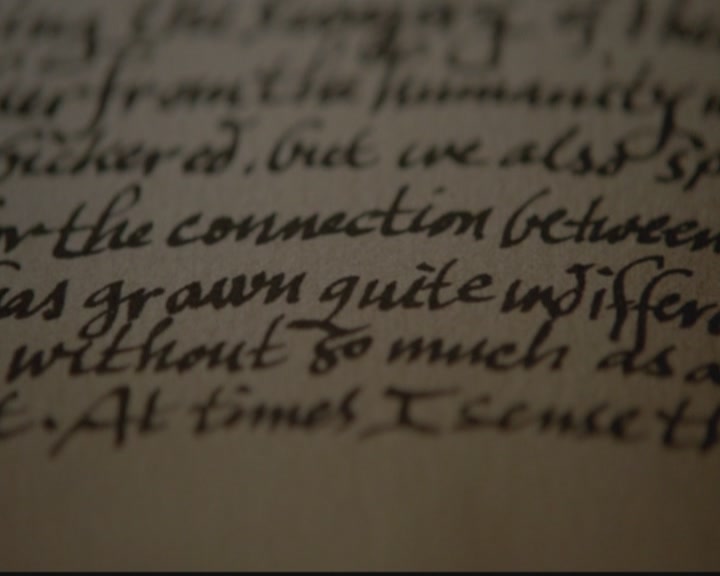 the
from the humanity
bickered, but we also sp
the connection between
as grown quite indiffer
without so much as a
t. At times I sense th